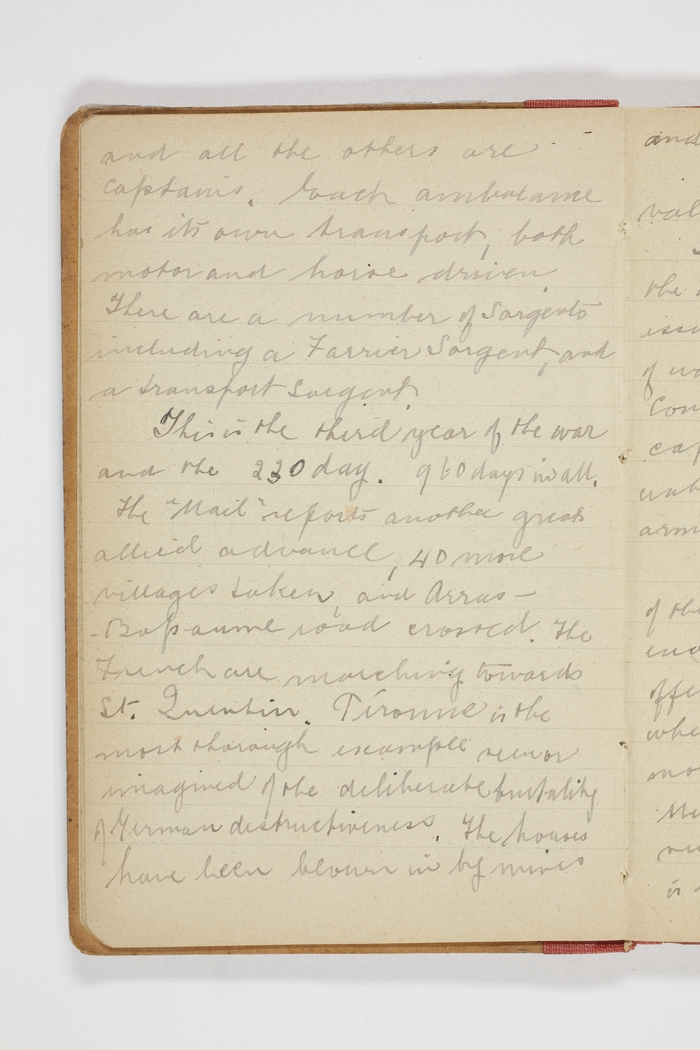 and all the others are
captains. Each ambulance
has its own transport, both
motor and horse driven.
There are a number of Sargents
including a Farrier Sargent, and
a transport Sargent.
This is the third year of the war
and the 230 day. 960 days in all.
The "Mail" reports another great
allied advance, 40 more
villages taken, and Arras-
-Bapaume road crossed. The
French are marching towards
St. Quentin. Péronne is the
most thorough example
imagined of the deliberate brutality
of German destructiveness. The houses
have been blown in by mines
and
val
the
issu
of
Con
cap
arm
of the
offe
whe
mo
is